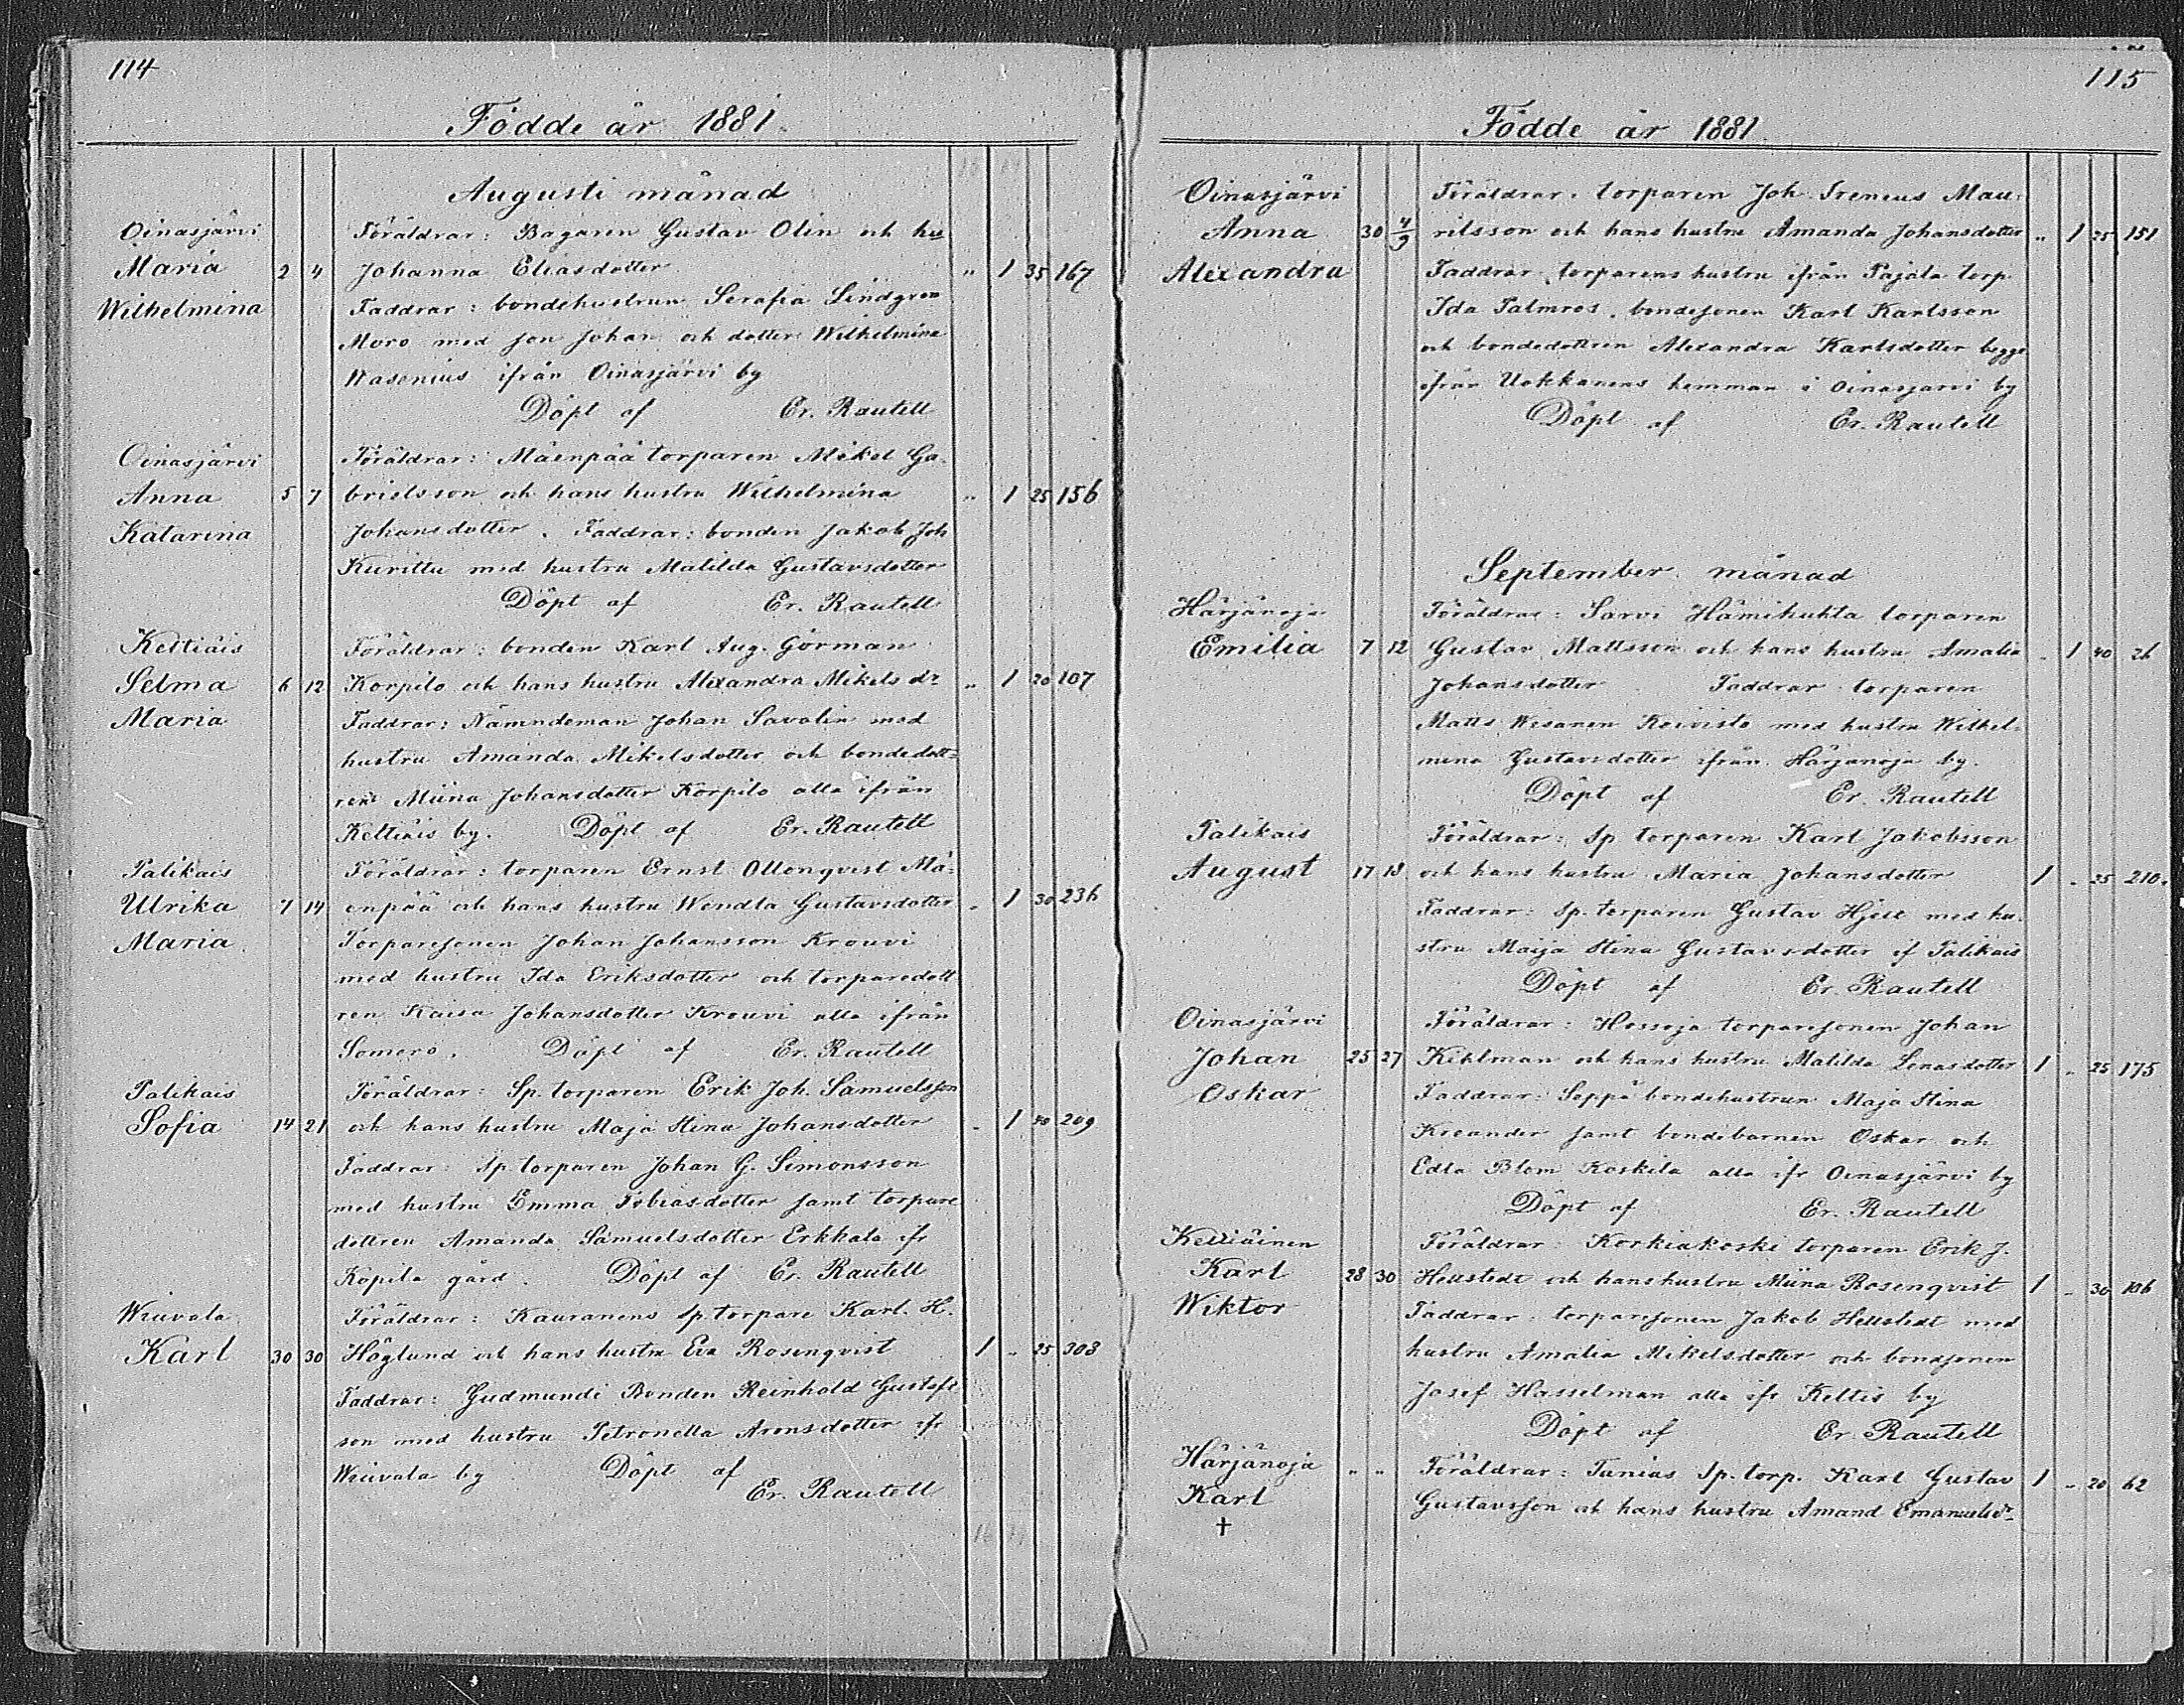 114
Födde år 1881.
Augusti månad
Oinasjärvi Föräldrar: Bagaren Gustav Olin och hu
Maria 2 4 Johanna Eliasdotter " 1 35 167
Wilhelmina Faddrar: bondehustrun Serafia Lindgren
Moro med son Johan och dotter Wilhelmina
Wasenius ifrån Oinasjärvi by
Döpt af Er. Rautell
Oinasjärvi Föräldrar: Mäenpää torparen Mikel Ga-
Anna 5 7 brielsson och hans hustru Wilhelmina " 1 25 156
Katarina Johansdotter. Faddrar: bonden Jakob Joh
Kurittu med hustru Matilda Gustavsdotter
Döpt af Er. Rautell
Keltiäis Föräldrar: bonden Karl Aug. Görman
Selma 6 12 Korpilo och hans hustru Alexandra Mikels dr " 1 20 107
Maria Faddrar: Nämndeman Johan Savalin med
hustru Amanda Mikelsdotter och bondedott=
ren Miina Johansdotter Korpilo alla ifrån
Keltiäis by. Döpt af Er. Rautell
Palikais Föräldrar: torparen Ernst Ollonqvist Mä=
Ulrika 7 14 enpää och hans hustru Wendla Gustavsdotter " 1 30 236
Maria Torparesonen Johan Johansson Krouvi
med hustru Ida Eriksdotter och torparedott
ren Kaisa Johansdotter Krouvi alla ifrån
Somero. Döpt af Er. Rautell
Palikais Föräldrar: Sp. torparen Erik Joh. Samuelsson
Sofia 14 21 och hans hustru Maja Stina Johansdotter " 1 40 209
Faddrar: Sp torparen Johan G. Simonsson
med hustru Emma Tobiasdotter samt torpare
dottren Amanda Samuelsdotter Erkhala ifr
Kopila gård. Döpt af Er. Rautell
Wiuvala Föräldrar: Kauranens sp. torpare Karl. H.
Karl 30 30 Höglund och hans hustru Eva Rosenqvist 1 " 25 303
Faddrar: Gudmundi Bonden Reinhold Gustafs
son med hustru Petronella Aronsdotter ifr
Wiuvala by Döpt af
Er. Rautell
115
Födde år 1881
Oinasjärvi Föräldrar: torparen Joh Ireneus Mau-
Anna 30 4/9 ritsson och hans hustru Amanda Johansdotter " 1 25 151
Alexandra Faddrar, torparens hustru ifrån Pajala torp
Ida Palmros, bondesonen Karl Karlsson
och bondedottren Alexandra Karlsdotter begge
ifrån Uokkanens hemman i Oinasjärvi by
Döpt af Er. Rautell
September månad
Härjänoja Föräldrar: Sarvi Hämihuhta torparen
Emilia 7 12 Gustav Mattsson och hans hustru Amalia " 1 40 26
Johansdotter Faddrar torparen
Matts Wesanen Koivisto med hustru Wilhel-
mina Gustavsdotter ifrån Härjänoja by.
Döpt af Er. Rautell
Palikais Föräldrar: Sp torparen Karl Jakobsson
August 17 18 och hans hustru Maria Johansdotter 1 " 25 210.
Faddrar: Sp. torparen Gustav Hjelt med hu-
stru Maija Stina Gustavsdotter if Palikais
Döpt af Er. Rautell
Oinasjärvi Föräldrar: Hossoja torparesonen Johan
Johan 25 27 Kihlman och hans hustru Matilda Lenasdotter 1 " 25 175
Oskar Faddrar: Seppä bondehustrun Maja Stina
Kreander samt bondebarnen Oskar och
Edla Blom Koskila alla ifr Oinasjärvi by
Döpt af Er. Rautell
Keltiäinen Föräldrar: Korkiakoski torparen Erik J.
Karl 28 30 Hellstedt och hans hustru Miina Rosenqvist 1 " 30 106
Wiktor Faddrar: torparesonen Jakob Hellstedt med
hustru Amalia Mikelsdotter och bondsonen
Josef Hasselman alla ifr Keltis by
Döpt af Er. Rautell
Härjänoja " " Föräldrar: Tunias Sp. torp. Karl Gustav 1 " 20 62
Karl Gustavsson och hans hustru Amand Emanuelsdr
†